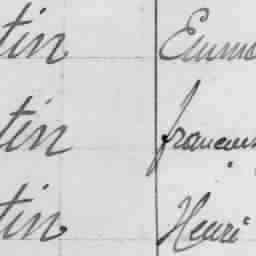 tin Emma
tin françois
tin Henri